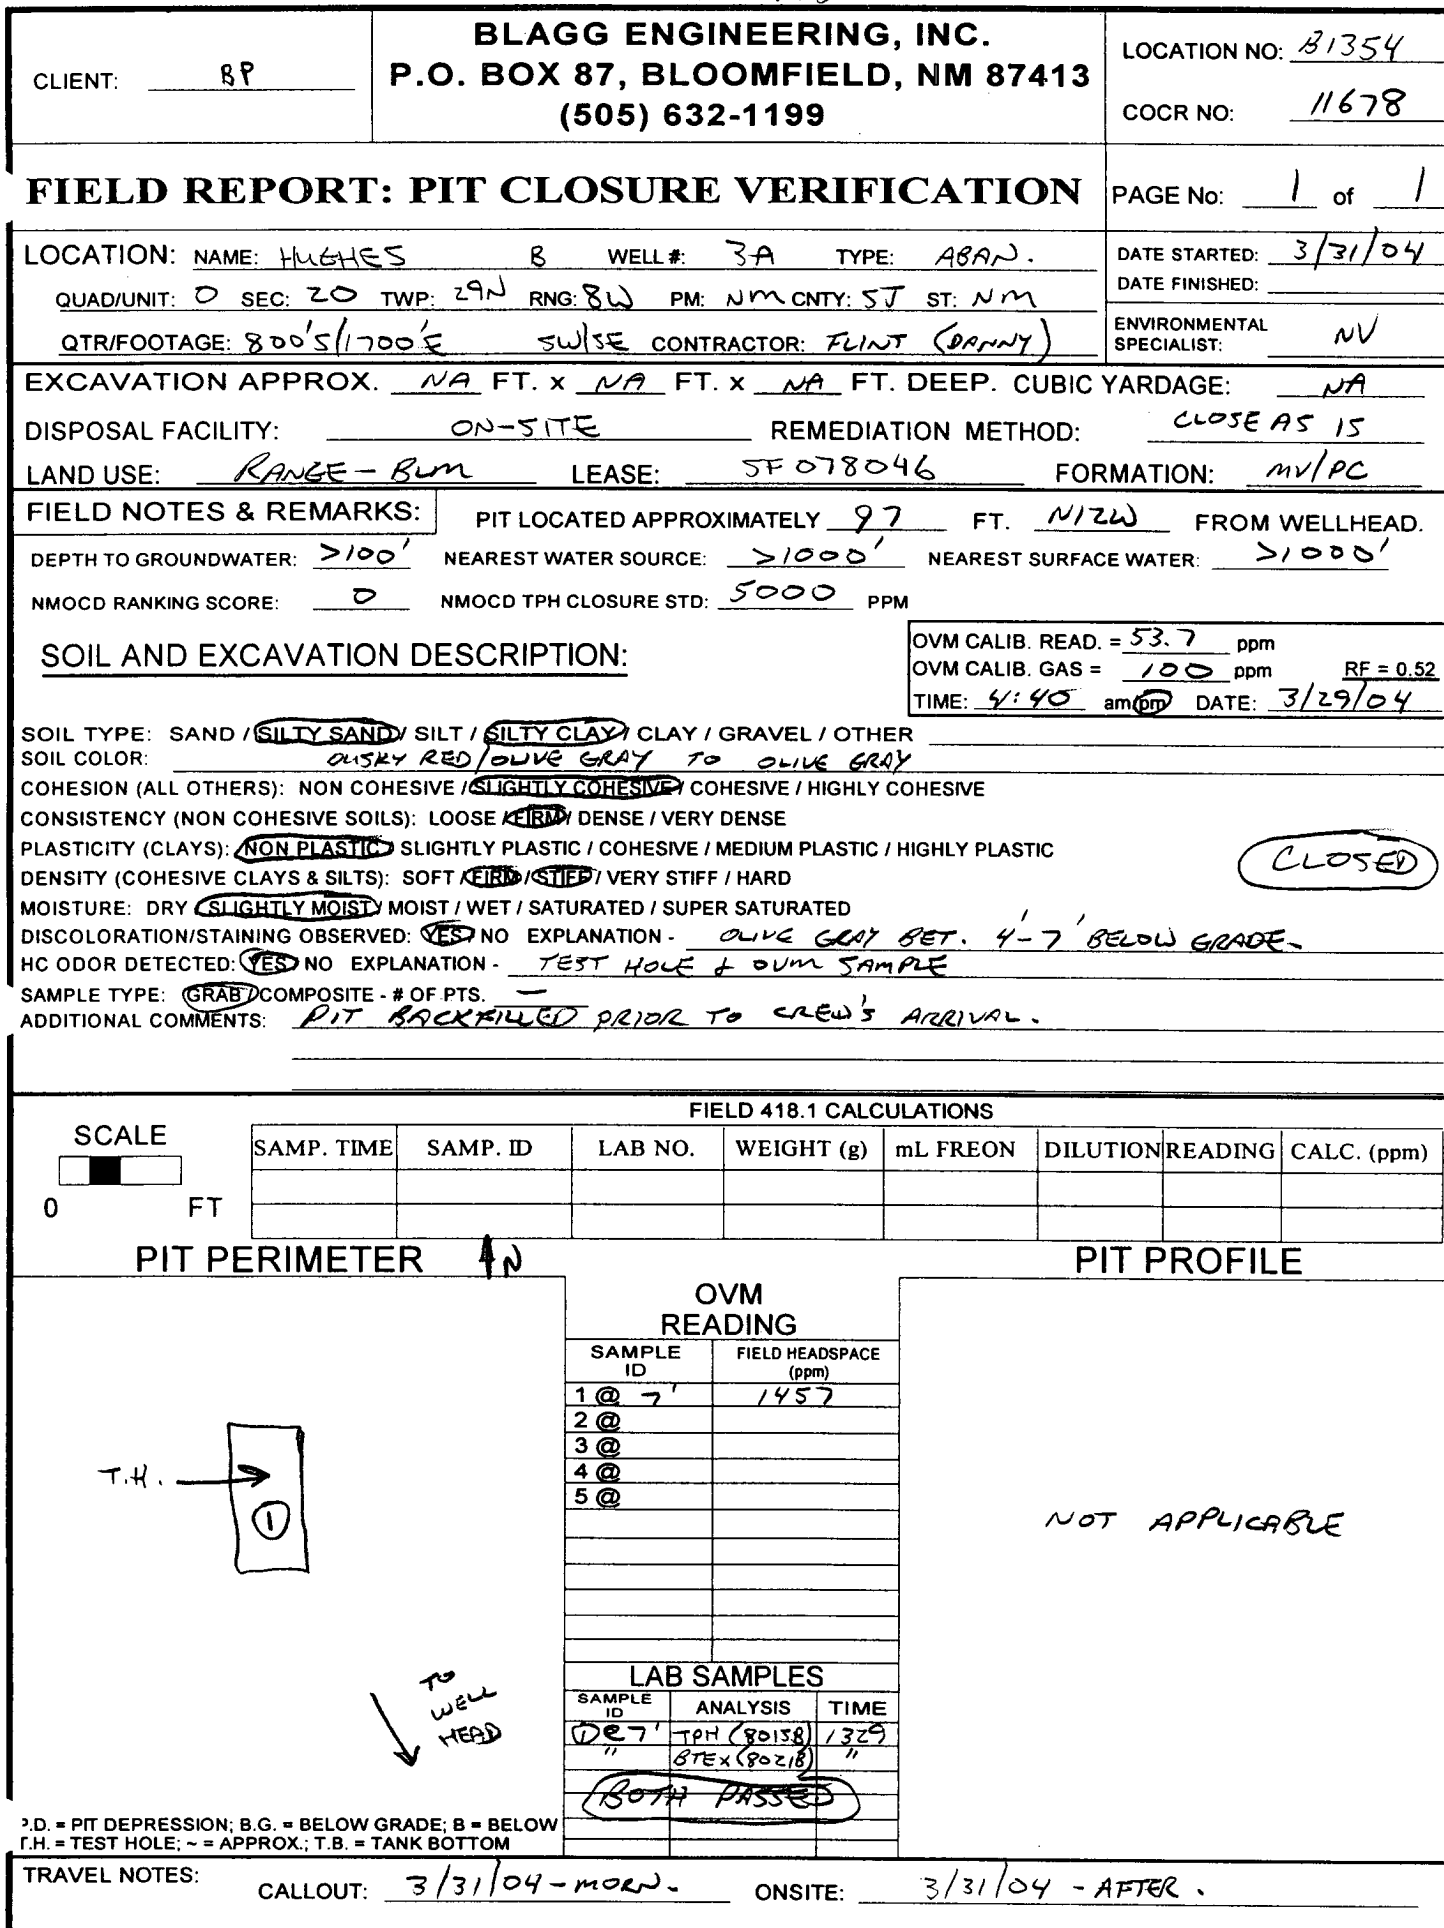 BLAGG ENGINEERING, INC.
P.O. BOX 87, BLOOMFIELD, NM 87413
(505) 632-1199
CLIENT: BP
LOCATION NO: B1354
COCR NO: 11678
FIELD REPORT: PIT CLOSURE VERIFICATION
PAGE No: 1 of 1
LOCATION: NAME: HUGHES B WELL #: 3A TYPE: ABAN.
QUAD/UNIT: O SEC: 20 TWP: 29N RNG: 8W PM: NM CNTY: SJ ST: NM
QTR/FOOTAGE: 800'S/1700'E SW/SE CONTRACTOR: FLINT (DANNY)
DATE STARTED: 3/31/04
DATE FINISHED:
ENVIRONMENTAL SPECIALIST: NV
EXCAVATION APPROX. NA FT. x NA FT. x NA FT. DEEP. CUBIC YARDAGE: NA
DISPOSAL FACILITY: ON-SITE REMEDIATION METHOD: CLOSE AS IS
LAND USE: RANGE - BLM LEASE: SF 078046 FORMATION: MV/PC
FIELD NOTES & REMARKS: PIT LOCATED APPROXIMATELY 97 FT. N12W FROM WELLHEAD.
DEPTH TO GROUNDWATER: >100' NEAREST WATER SOURCE: >1000' NEAREST SURFACE WATER: >1000'
NMOCD RANKING SCORE: 0 NMOCD TPH CLOSURE STD: 5000 PPM
SOIL AND EXCAVATION DESCRIPTION:
OVM CALIB. READ. = 53.7 ppm
OVM CALIB. GAS = 100 ppm RF = 0.52
TIME: 4:40 am/pm DATE: 3/29/04
SOIL TYPE: SAND / SILTY SAND / SILT / SILTY CLAY / CLAY / GRAVEL / OTHER
SOIL COLOR: DUSKY RED/OLIVE GRAY TO OLIVE GRAY
COHESION (ALL OTHERS): NON COHESIVE / SLIGHTLY COHESIVE / COHESIVE / HIGHLY COHESIVE
CONSISTENCY (NON COHESIVE SOILS): LOOSE / FIRM / DENSE / VERY DENSE
PLASTICITY (CLAYS): NON PLASTIC / SLIGHTLY PLASTIC / COHESIVE / MEDIUM PLASTIC / HIGHLY PLASTIC
CLOSED
DENSITY (COHESIVE CLAYS & SILTS): SOFT / FIRM / STIFF / VERY STIFF / HARD
MOISTURE: DRY / SLIGHTLY MOIST / MOIST / WET / SATURATED / SUPER SATURATED
DISCOLORATION/STAINING OBSERVED: YES / NO EXPLANATION - OLIVE GRAY BET. 4'-7' BELOW GRADE.
HC ODOR DETECTED: YES / NO EXPLANATION - TEST HOLE & OVM SAMPLE
SAMPLE TYPE: GRAB / COMPOSITE - # OF PTS. —
ADDITIONAL COMMENTS: PIT BACKFILLED PRIOR TO CREW'S ARRIVAL.
FIELD 418.1 CALCULATIONS
SCALE
0 FT
SAMP. TIME SAMP. ID LAB NO. WEIGHT (g) mL FREON DILUTION READING CALC. (ppm)
PIT PERIMETER N
PIT PROFILE
OVM
READING
SAMPLE ID FIELD HEADSPACE (ppm)
1 @ 7' 1457
2 @
3 @
4 @
5 @
T.H.
1
NOT APPLICABLE
TO
WELL
HEAD
LAB SAMPLES
SAMPLE ID ANALYSIS TIME
1 @ 7' TPH (8015B) 1329
" BTEX (8021B) "
BOTH PASSED
P.D. = PIT DEPRESSION; B.G. = BELOW GRADE; B = BELOW
T.H. = TEST HOLE; ~ = APPROX.; T.B. = TANK BOTTOM
TRAVEL NOTES: CALLOUT: 3/31/04 - MORN. ONSITE: 3/31/04 - AFTER.